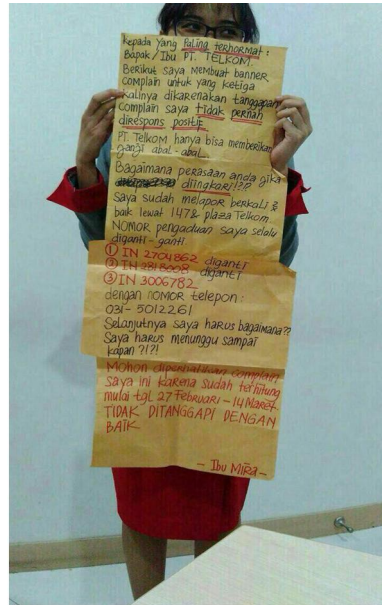 Kepada Yang Paling terhormat :
Bapak / Ibu PT. TELKOM
Berikut saya membuat banner
complain untuk yang ketiga
kalinya dikarenakan tanggapan
complain saya tidak pernah
direspons positif
PT. Telkom hanya bisa memberikan
janji abal-abal
Bagaimana perasaan anda jika
diingkari!??
Saya sudah melapor berkali 2
baik lewat 147 & plaza Telkom
NOMOR pengaduan saya selalu
diganti-ganti
① IN 2704862 diganti
② IN 2818008 diganti
③ IN 3006782
dengan nomor telepon :
031- 5012261
Selanjutnya saya harus bagaimana??
Saya harus menunggu sampai
kapan ?!?!
Mohon diperhatikan complain
saya ini karena sudah terhitung
mulai tgl 27 Februari - 14 Maret
TIDAK DITANGGAPI DENGAN
BAIK
- Ibu Mira -